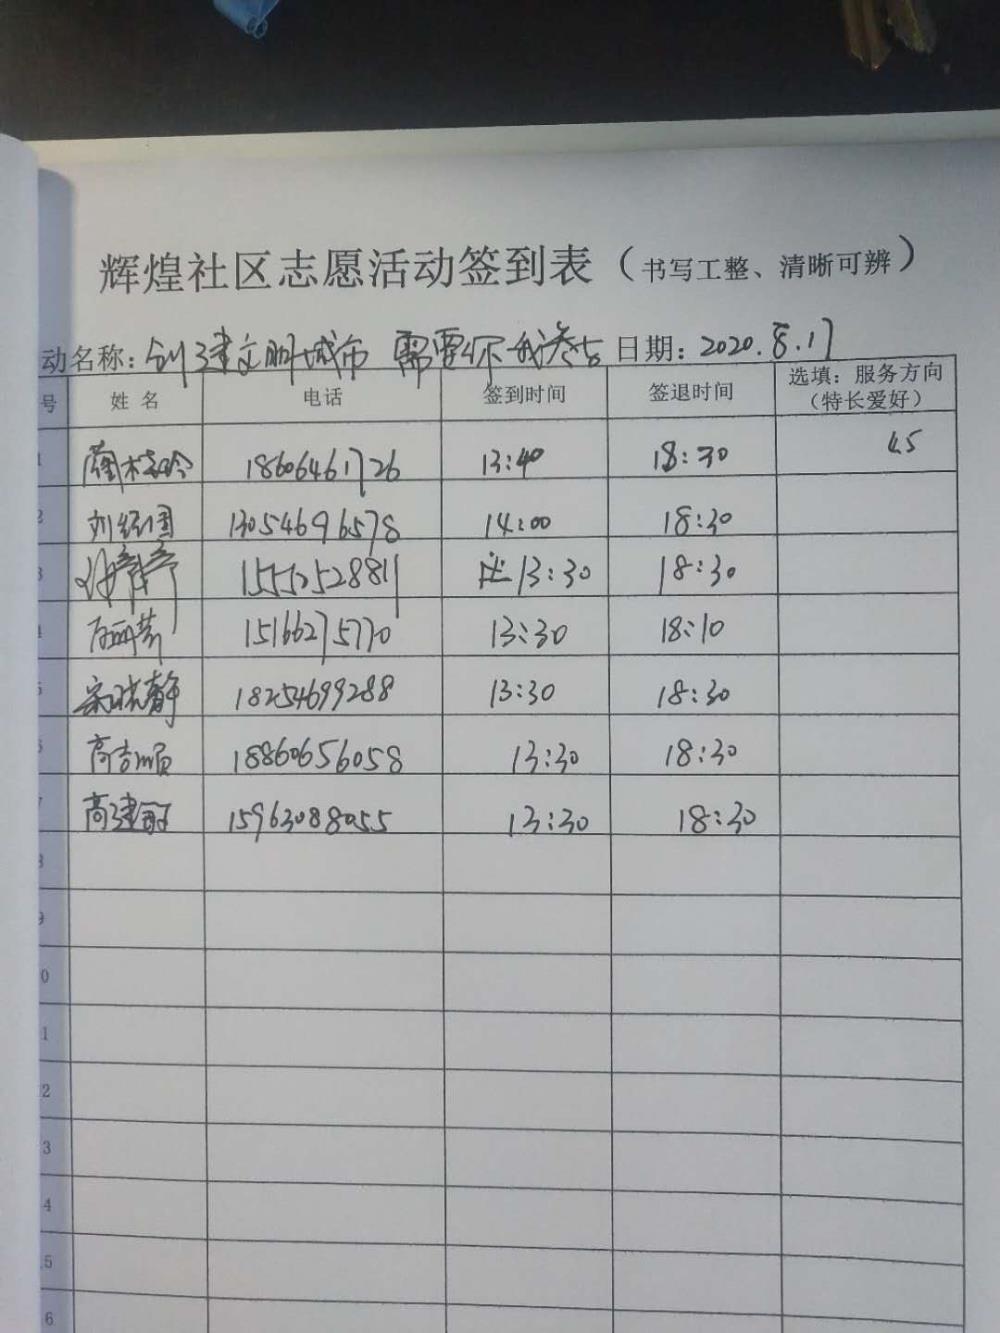 辉煌社区志愿活动签到表（书写工整、清晰可辨）
动名称：创建文明城市 需要你我参与 日期：2020.8.17
号 姓 名 电话 签到时间 签退时间 选填：服务方向（特长爱好）
1 18606461726 13:40 18:30 4.5
2 刘经国 13054696578 14:00 18:30
3 15552528811 13:30 18:30
4 15166275770 13:30 18:10
5 宋晓静 18254699288 13:30 18:30
6 高吉顺 18860656058 13:30 18:30
7 高建 15963088055 13:30 18:30
8
9
0
1
2
3
4
5
6